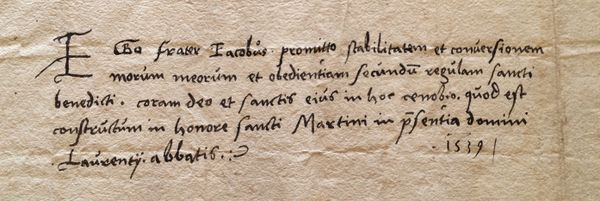 EGo frater Iacobus promitto stabilitatem et conversionem
morum meorum et obedientiam secundū regulam sancti
benedicti . coram deo et sanctis eius in hoc cenobio . quod est
constructum in honore sancti Martini in p̄sentia domini
. Laurentij . abbatis . : 1539